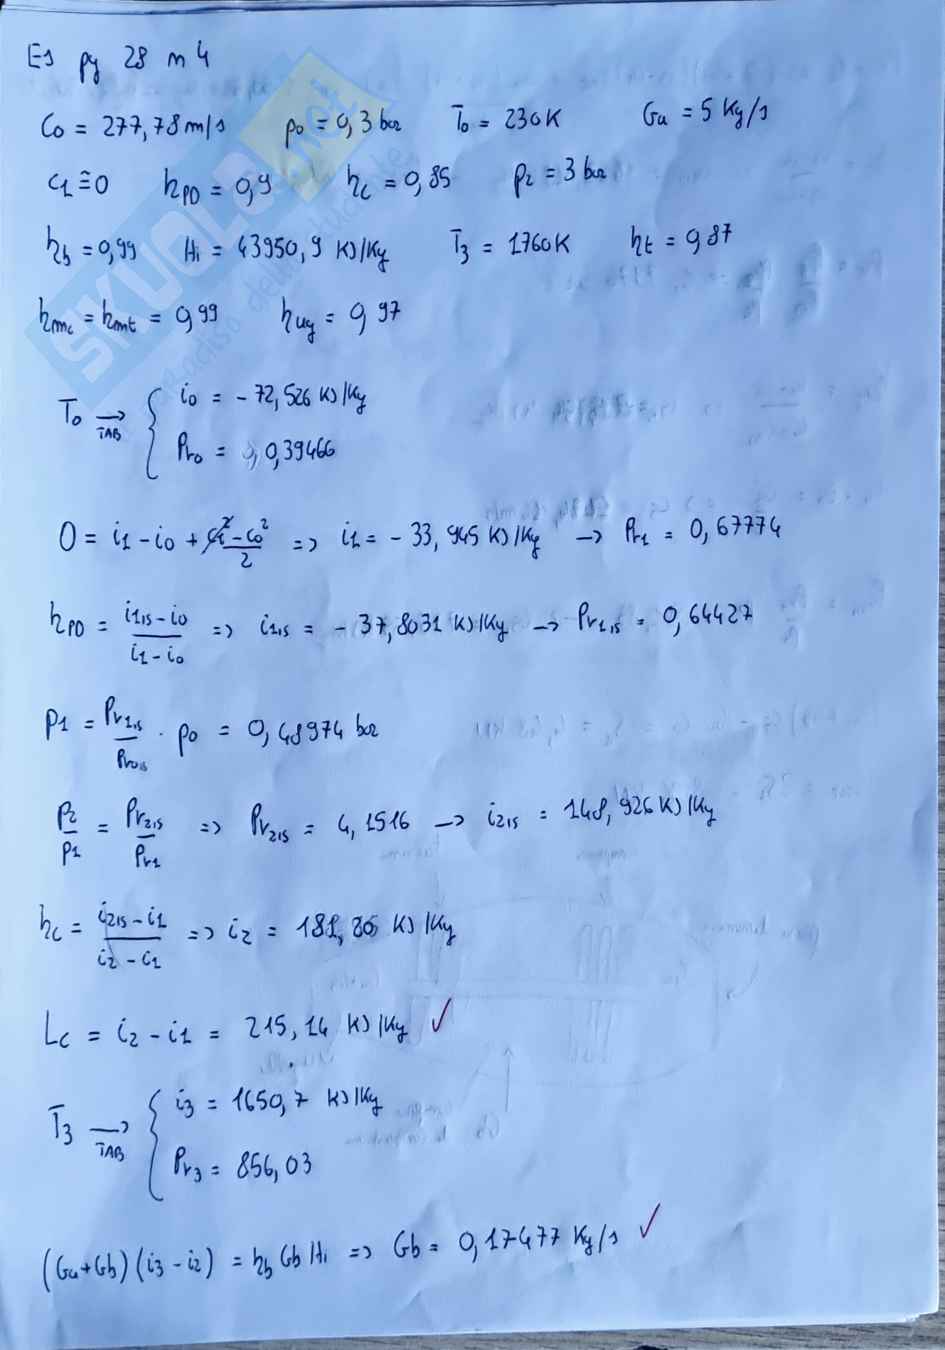 Es pg 28 n 4
C0 = 277,78 m/s p0 = 0,3 bar T0 = 230K Ga = 5 Kg/s
c1 ≅ 0 ηPD = 0,9 ηc = 0,85 p2 = 3 bar
ηb = 0,99 Hi = 43950,9 KJ/Kg T3 = 1760K ηt = 0,87
ηmc = ηmt = 0,99 ηug = 0,97
T0 →TAB { i0 = -72,526 KJ/Kg
Pr0 = 0,39466
0 = i1 - i0 + (c1² - c0²)/2 => i1 = -33,945 KJ/Kg → Pr1 = 0,67774
ηPD = (i1is - i0)/(i1 - i0) => i1is = -37,8031 KJ/Kg → Pr1is = 0,64427
P1 = Pr1is/Pr0is · p0 = 0,48974 bar
P2/P1 = Pr2is/Pr1 => Pr2is = 4,1516 → i2is = 148,926 KJ/Kg
ηc = (i2is - i1)/(i2 - i1) => i2 = 181,86 KJ/Kg
Lc = i2 - i1 = 215,14 KJ/Kg ✓
T3 →TAB { i3 = 1650,7 KJ/Kg
Pr3 = 856,03
(Ga+Gb)(i3 - i2) = ηb Gb Hi => Gb = 0,17477 Kg/s ✓
SKUOLA.NET